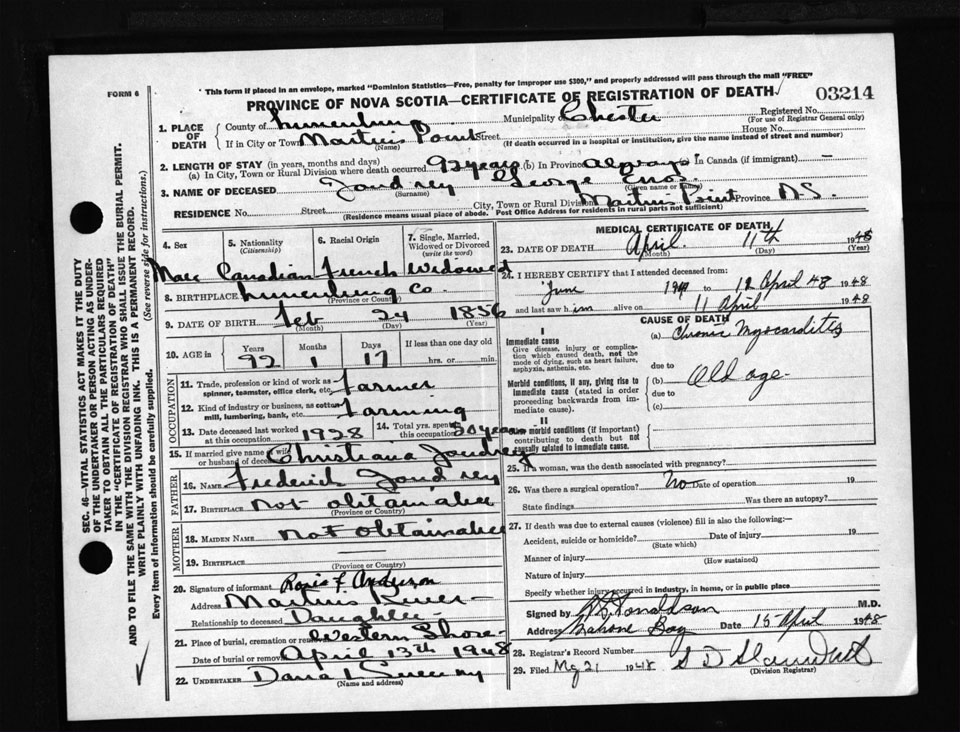 FORM 6
"This form if placed in an envelope, marked "Dominion Statistics—Free, penalty for improper use $300," and properly addressed will pass through the mail "FREE"
PROVINCE OF NOVA SCOTIA—CERTIFICATE OF REGISTRATION OF DEATH
03214
1. PLACE OF DEATH
County of Lunenburg Municipality of Chester Registered No.
(For use of Registrar General only)
If in City or Town Martins Point Street House No.
(Name) (If death occurred in a hospital or institution, give the name instead of street and number)
2. LENGTH OF STAY (in years, months and days)
(a) In City, Town or Rural Division where death occurred 92 years (b) In Province always In Canada (if immigrant) —
3. NAME OF DECEASED Jaudrey George Enos
(Surname) (Given name or names)
RESIDENCE No. Street City, Town or Rural Division Martins Point Province N.S.
(Residence means usual place of abode. Post Office Address for residents in rural parts not sufficient)
4. Sex
5. Nationality (Citizenship)
6. Racial Origin
7. Single, Married, Widowed or Divorced (write the word)
Male Canadian French Widowed
8. BIRTHPLACE Lunenburg Co.
(Province or Country)
9. DATE OF BIRTH Feb 24 1856
(Month) (Day) (Year)
10. AGE in Years Months Days If less than one day old
92 1 17 hrs. or min.
OCCUPATION
11. Trade, profession or kind of work as spinner, teamster, office clerk, etc. Farmer
12. Kind of industry or business, as cotton mill, lumbering, bank, etc. Farming
13. Date deceased last worked at this occupation 1928
14. Total yrs. spent in this occupation 50 years
15. If married give name of wife or husband of deceased Christiana Jaudrey
FATHER
16. Name Frederick Jaudrey
17. Birthplace Not obtainable
(Province or Country)
MOTHER
18. MAIDEN NAME Not obtainable
19. BIRTHPLACE —
(Province or Country)
20. Signature of informant Anderson
Address Martins River
Relationship to deceased Daughter
21. Place of burial, cremation or removal Western Shore
Date of burial or removal April 13th 1948
22. UNDERTAKER
(Name and address)
MEDICAL CERTIFICATE OF DEATH
23. DATE OF DEATH April 11th 1948
(Month) (Day) (Year)
24. I HEREBY CERTIFY that I attended deceased from:
June 19 to 12 April 48 1948
and last saw him alive on 11 April 1948
CAUSE OF DEATH
I
Immediate cause
Give disease, injury or complication which caused death, not the mode of dying, such as heart failure, asphyxia, asthenia, etc.
(a) Chronic Myocarditis
due to
Morbid conditions, if any, giving rise to immediate cause (stated in order proceeding backwards from immediate cause).
(b) Old age
due to
(c)
II
Other morbid conditions (if important) contributing to death but not causally related to immediate cause.
25. If a woman, was the death associated with pregnancy?
26. Was there a surgical operation? No Date of operation 19
State findings Was there an autopsy?
27. If death was due to external causes (violence) fill in also the following:—
Accident, suicide or homicide? Date of injury 19
(State which)
Manner of injury
(How sustained)
Nature of injury
Specify whether injury occurred in industry, in home, or in public place
Signed by Donaldson M.D.
Address Mahone Bay Date 15 April 1948
28. Registrar's Record Number
29. Filed 21 1948 S D
(Division Registrar)
SEC. 46—VITAL STATISTICS ACT MAKES IT THE DUTY
OF THE UNDERTAKER OR PERSON ACTING AS UNDER-
TAKER TO OBTAIN ALL THE PARTICULARS REQUIRED
IN THE "CERTIFICATE OF REGISTRATION OF DEATH"
AND TO FILE THE SAME WITH THE DIVISION REGISTRAR WHO SHALL ISSUE THE BURIAL PERMIT.
WRITE PLAINLY WITH UNFADING INK. THIS IS A PERMANENT RECORD.
Every item of information should be carefully supplied. (See reverse side for instructions.)